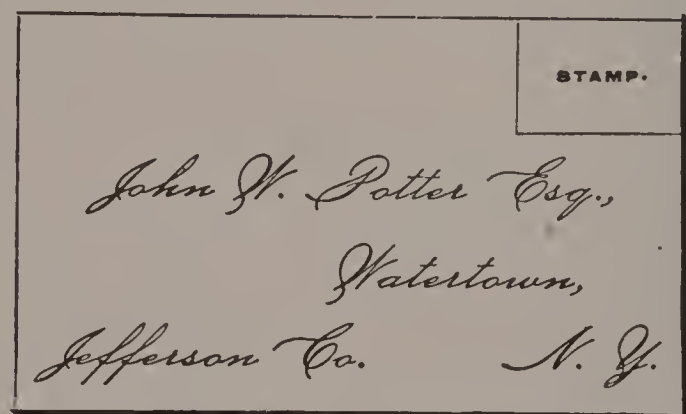 STAMP.
John W. Potter Esq.,
Watertown,
Jefferson Co. N. Y.